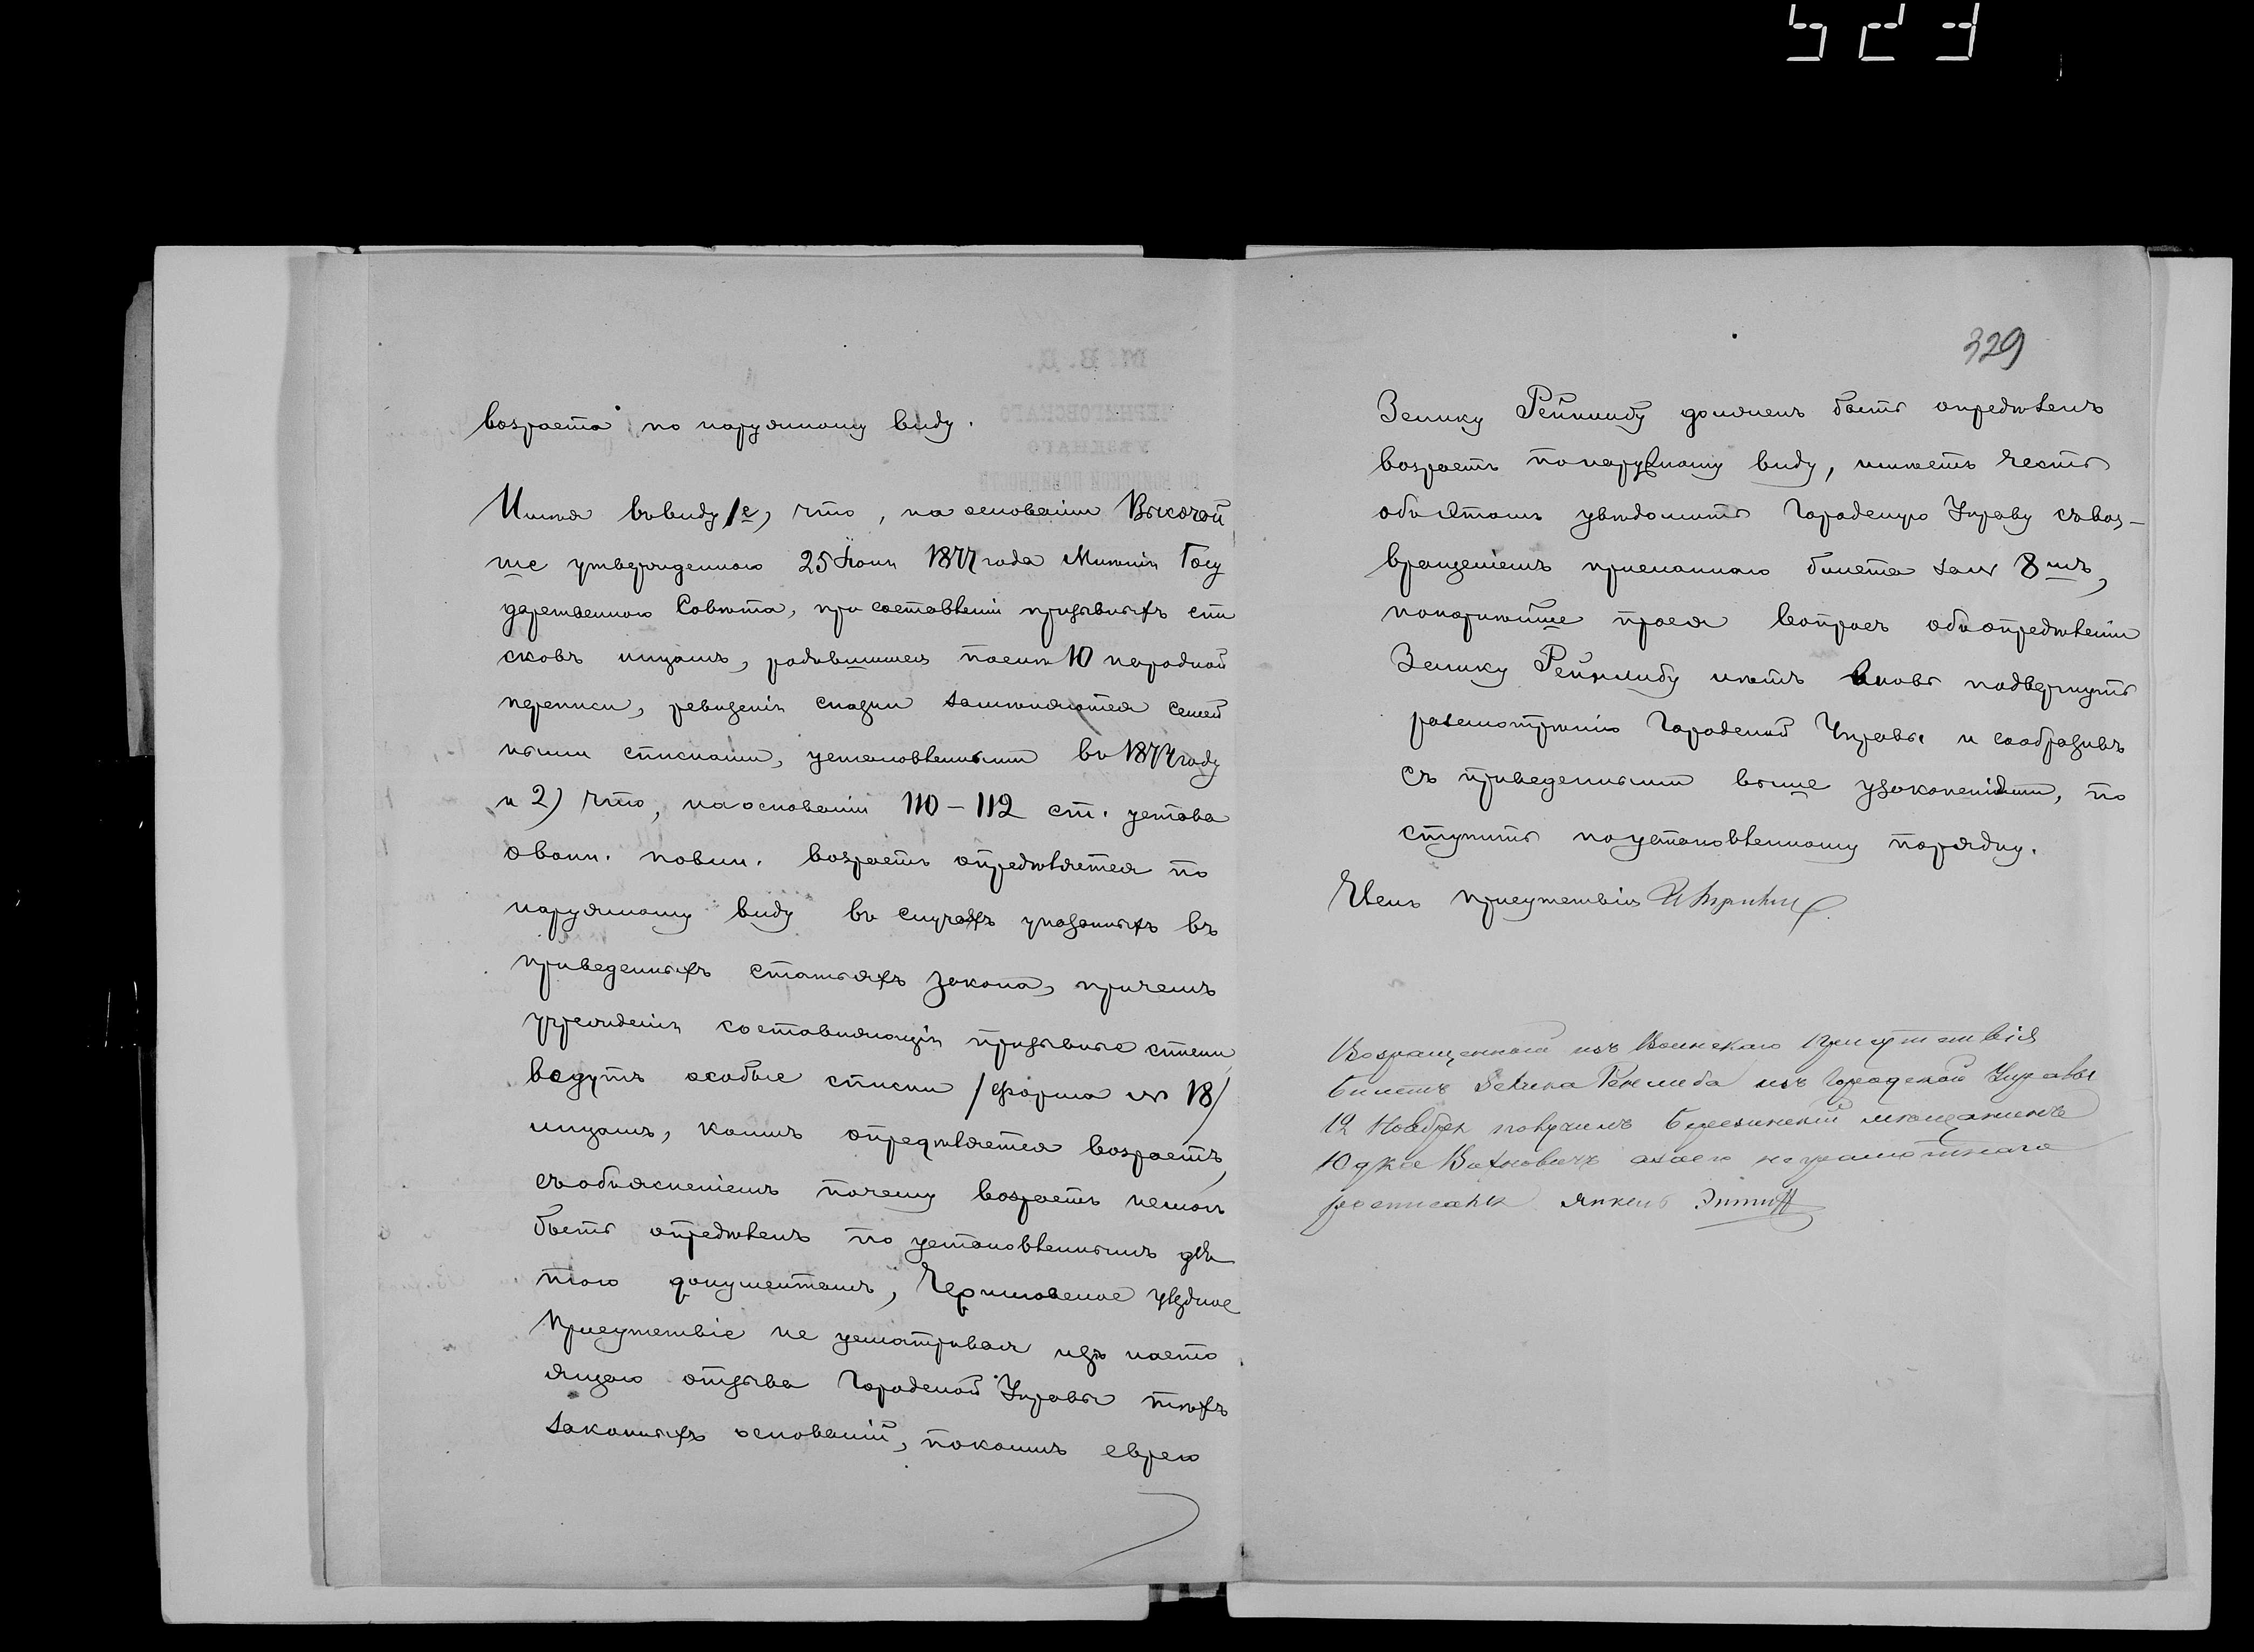 523
возраста по наружному виду.
Имѣя въ виду 1е, что, на основаніи Высочай
ше утвержденнаго 25 Іюня 1877 года Мнѣнія Госу
дарственнаго Совѣта, при составленіи призывныхъ спи
сковъ лицамъ, родившимся послѣ 10 народной
переписи, ревизскія сказки замѣняются семей
ными списками, установленными въ 1874 году
и 2) что, на основаніи 110-112 ст. устава
о воин. повин. возрастъ опредѣляется по
наружному виду въ случаяхъ указанныхъ въ
приведенныхъ статьяхъ закона, причемъ
учрежденія составляющія призывные списки
ведутъ особые списки /форма № 18/
лицамъ, коимъ опредѣляется возрастъ,
съ объясненіемъ почему возрастъ не мог
быть опредѣленъ по установленнымъ для
того документамъ, Черниговское уѣздное
Присутствіе не усматривая изъ насто
ящаго отзыва Городской Управы тѣхъ
законныхъ основаній, по коимъ еврею
М. В. Д.
ЧЕРНИГОВСКАГО
УѢЗДНАГО
ПО ВОИНСКОЙ ПОВИННОСТИ
329
Зелику Рейнлибу долженъ быть опредѣленъ
возрастъ по наружному виду, имѣетъ честь
объ этомъ увѣдомить Городскую Управу съ воз-
вращеніемъ присланнаго билета за № 8мъ,
покорнѣйше прося вопросъ объ опредѣленіи
Зелику Рейнлибу лѣтъ вновь подвергнуть
разсмотрѣнію Городской Управы и сообразивъ
съ приведенными выше узаконеніями, по
ступить по установленному порядку.
Членъ Присутствія
Возращенный изъ Воинскаго Присутствія
билетъ Зелика Рейнлиба изъ Городской Управы
12 Ноября получилъ Березинскій мѣщанинъ
Юдка а за его неграмотнаго
росписался Янкель